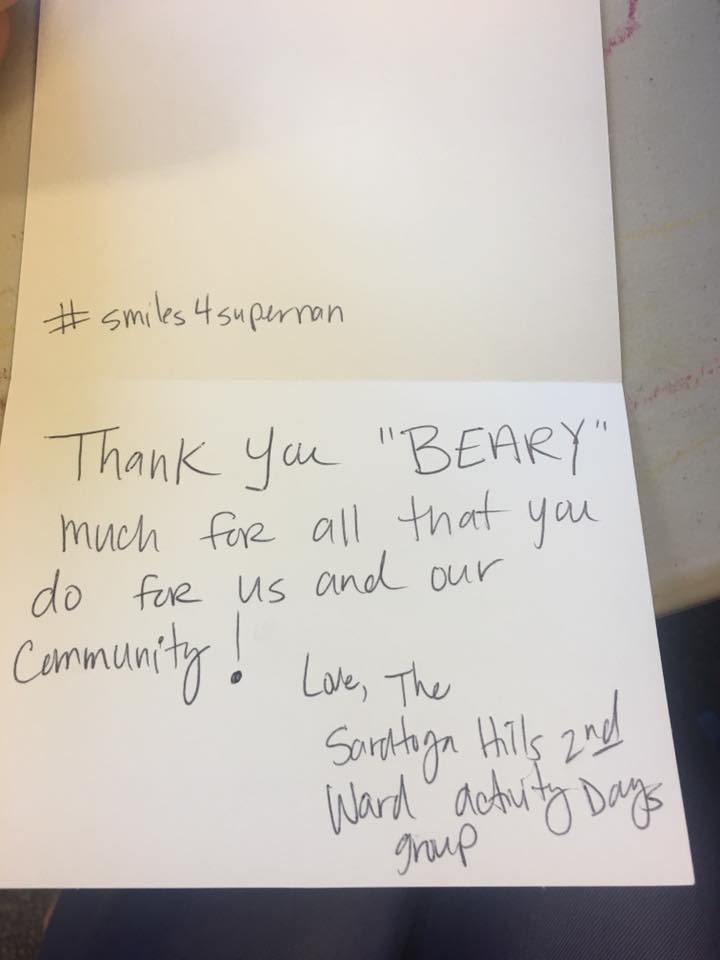 #smiles4supernan
Thank you "BEARY"
much for all that you
do for us and our
Community!
Love, The
Saratoga Hills 2nd
Ward activity Days
group